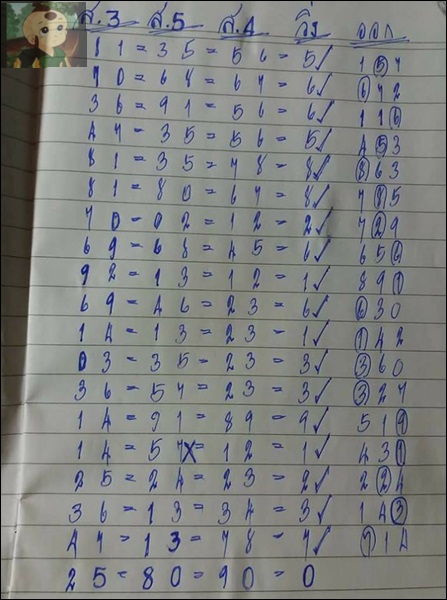 ส.3 ส.5 ส.4 วิ่ง ออก
11 = 35 = 56 = 5✓ 157
90 = 68 = 67 = 6✓ 642
36 = 91 = 56 = 6✓ 116
47 = 35 = 56 = 5✓ 453
81 = 35 = 78 = 8✓ 863
81 = 80 = 67 = 8✓ 785
70 = 02 = 12 = 2✓ 729
69 = 68 = 45 = 6✓ 656
92 = 13 = 12 = 1✓ 891
69 = 46 = 23 = 6✓ 630
14 = 13 = 23 = 1✓ 142
03 = 35 = 23 = 3✓ 360
36 = 57 = 23 = 3✓ 327
14 = 91 = 89 = 9✓ 519
14 = 57X= 12 = 1✓ 431
25 = 24 = 23 = 2✓ 224
36 = 13 = 34 = 3✓ 143
47 = 13 = 78 = 7✓ 714
25 = 80 = 90 = 0